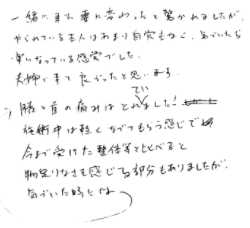 一緒に目で妻に変わったと驚かれましたが、
やられている本人はあまり自覚もなく、気づいたら
楽になっている感覚でした。
夫婦で来て良かったと思います
膝と首の痛みはとれました!
てい
施術中は軽くなでてもらう感じで
今まで受けた整体等とくらべると
物足りなさを感じる部分もありましたが、
気づいた時には